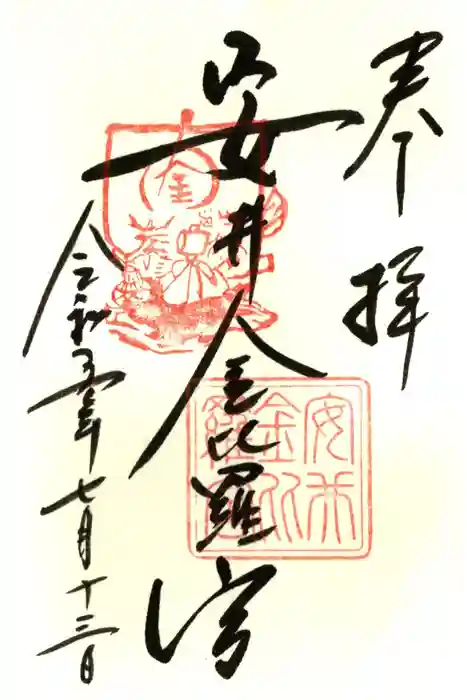 奉拝
安井金比羅宮
令和五年七月十三日
金
安井金比羅宮